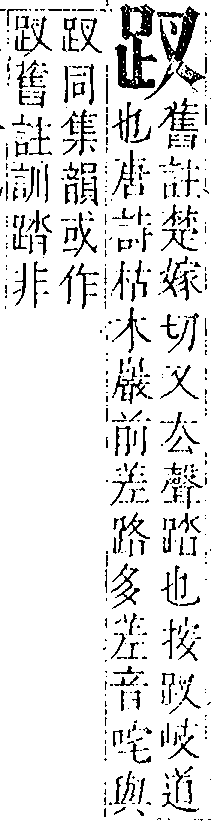 䟕
舊註楚嫁切叉厺聲踏也按䟕岐道
也唐詩枯木巖前差路多差音咤與
䟕同集韻或作
䟕舊註訓踏非